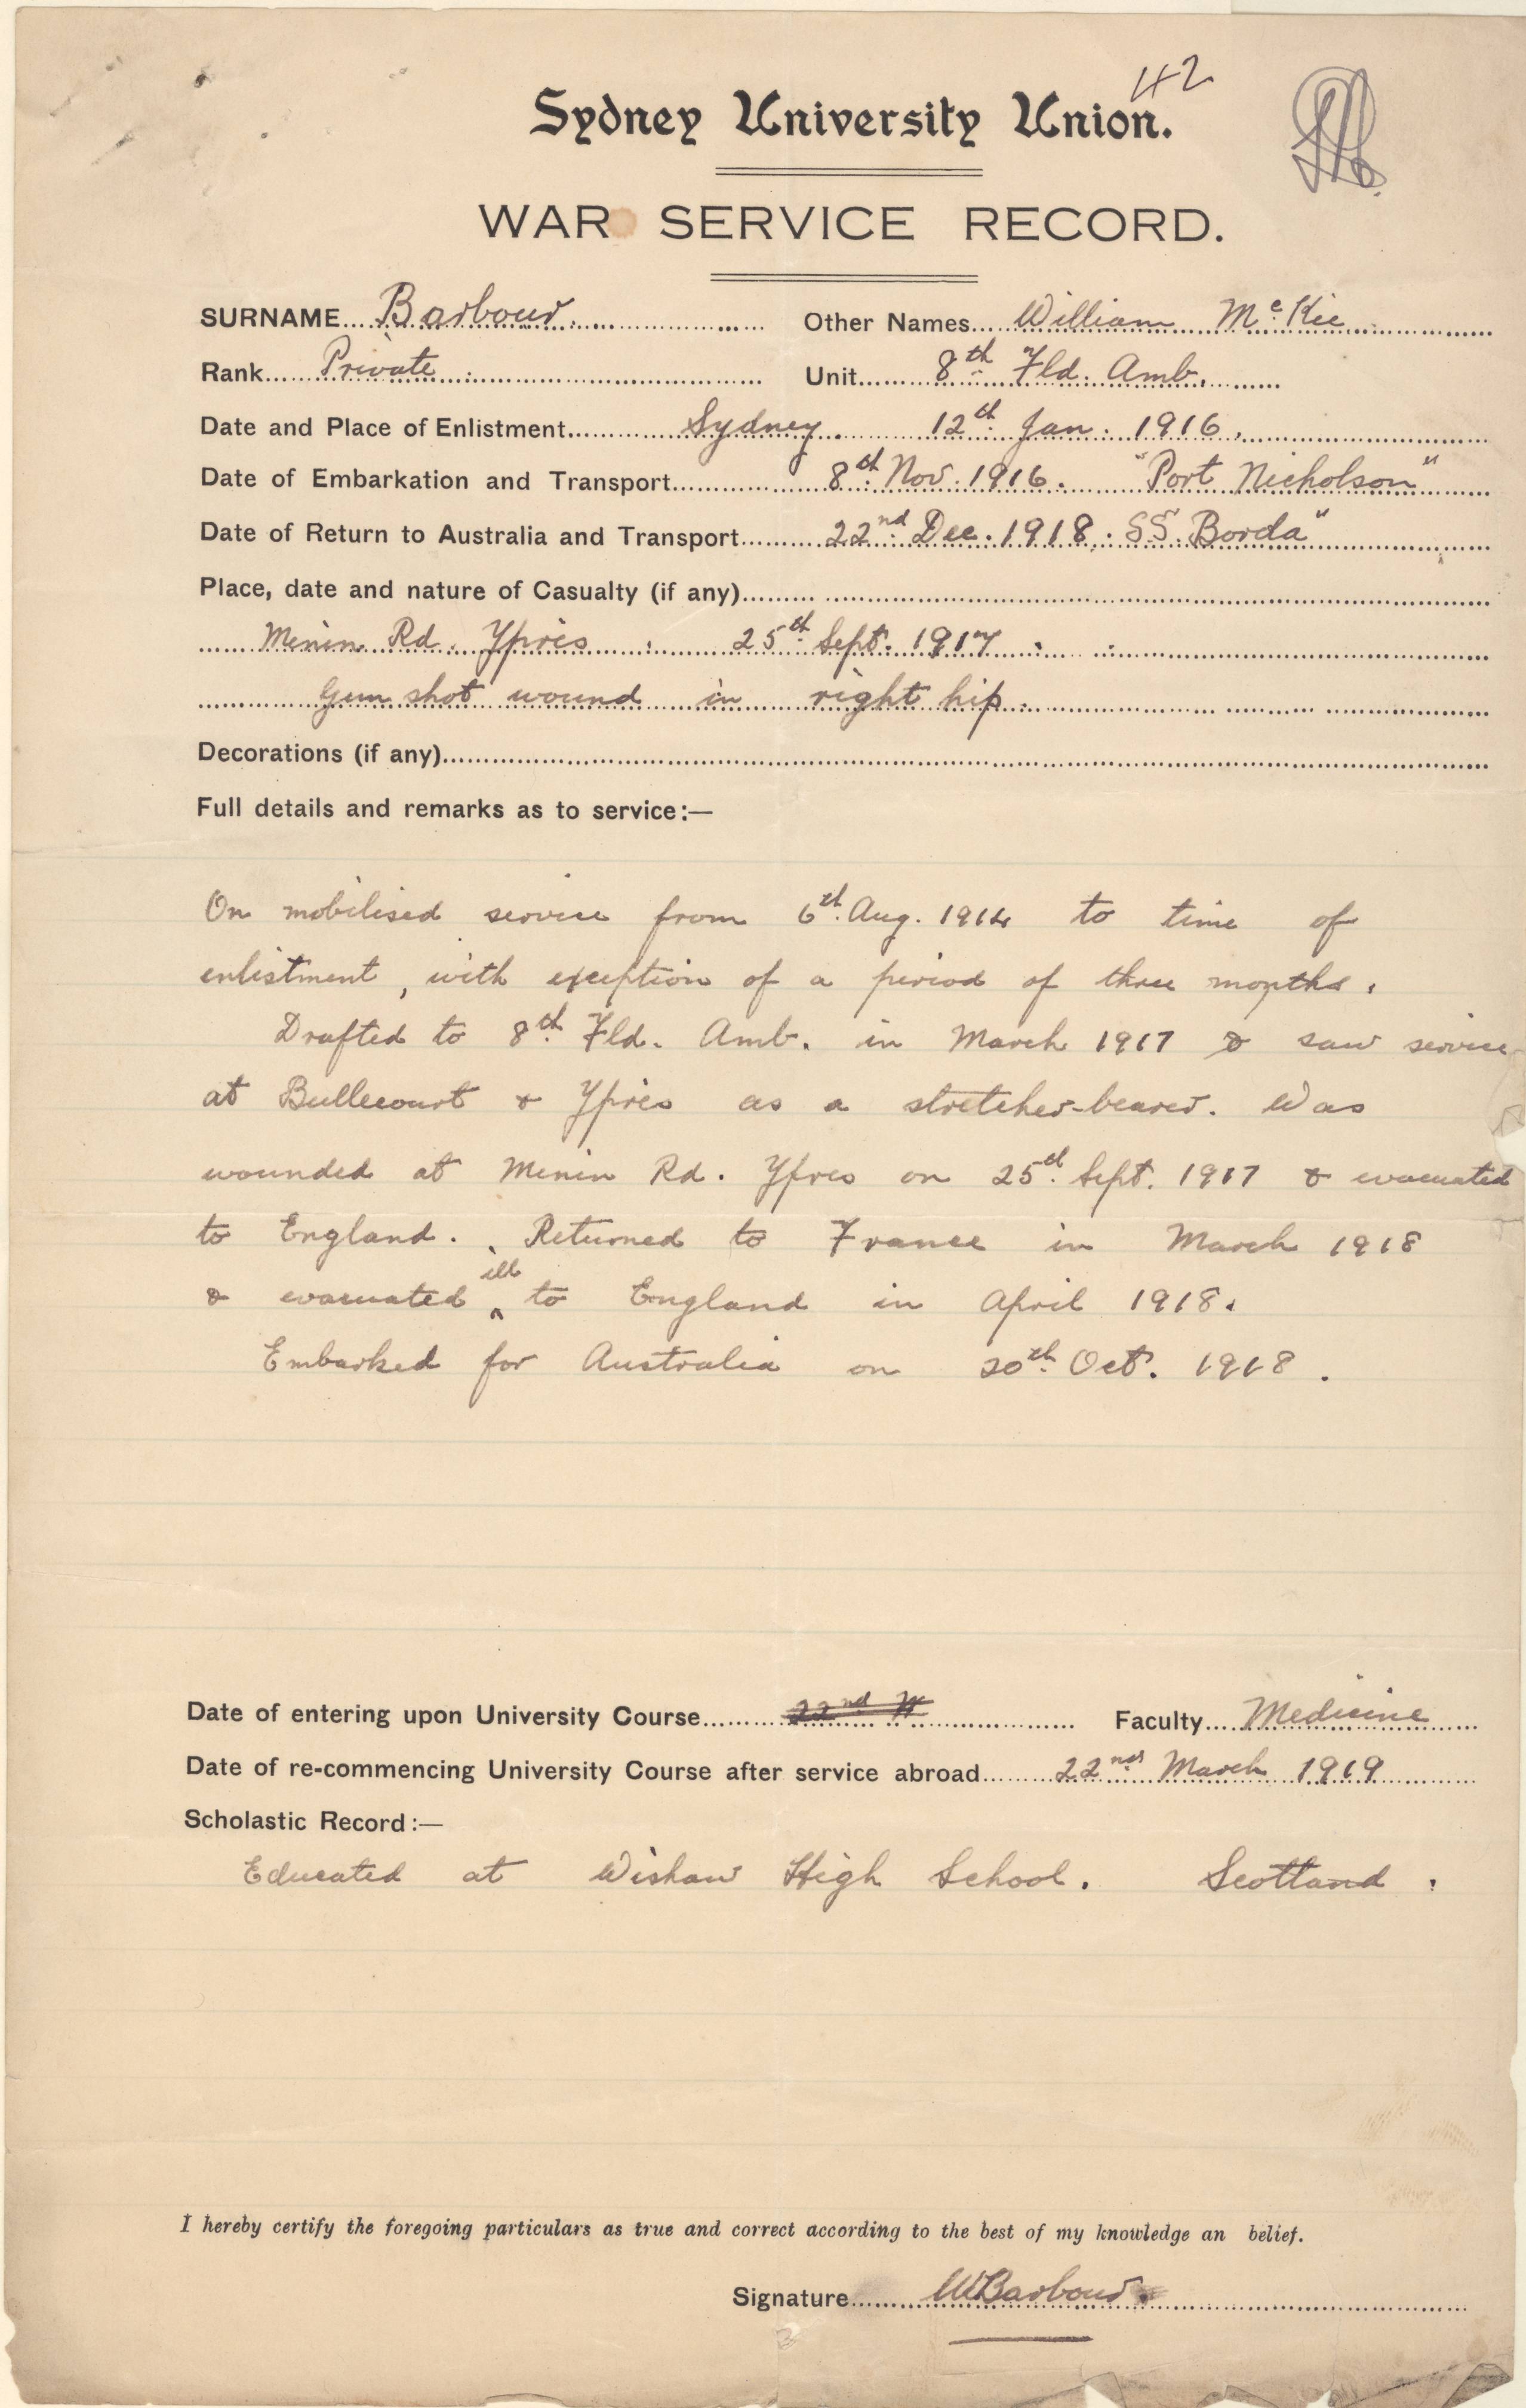 42
Sydney University Union.
WAR SERVICE RECORD.
SURNAME Barbour. Other Names William McKie
Rank Private Unit 8th Fld. Amb.
Date and Place of Enlistment Sydney. 12th Jan. 1916.
Date of Embarkation and Transport 8th Nov. 1916. "Port Nicholson"
Date of Return to Australia and Transport 22nd Dec. 1918. SS. Borda"
Place, date and nature of Casualty (if any)
Menin Rd. Ypres. 25th Sept. 1917.
Gun shot wound in right hip.
Decorations (if any)
Full details and remarks as to service:—
On mobilised service from 6th Aug. 1914 to time of
enlistment, with exception of a period of three months.
Drafted to 8th Fld. Amb. in March 1917 & saw service
at Bullecourt & Ypres as a stretcher-bearer. Was
wounded at Menin Rd. Ypres on 25th Sept. 1917 & evacuated
to England. Returned to France in March 1918
& evacuated ill to England in April 1918.
Embarked for Australia on 20th Oct. 1918.
Date of entering upon University Course 22nd M Faculty Medicine
Date of re-commencing University Course after service abroad 22nd March 1919
Scholastic Record:—
Educated at Wishaw High School. Scotland.
I hereby certify the foregoing particulars as true and correct according to the best of my knowledge an belief.
Signature WBarbour.